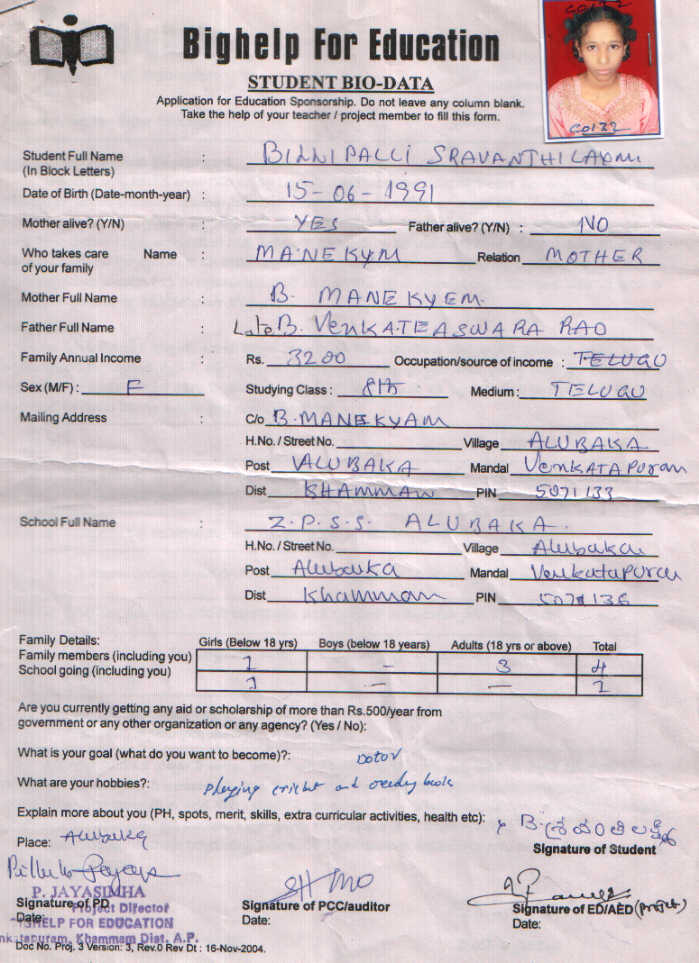 Bighelp For Education
STUDENT BIO-DATA
Application for Education Sponsorship. Do not leave any column blank.
Take the help of your teacher / project member to fill this form.
CO132
CO132
Student Full Name : BILLIPALLI SRAVANTHI LAXMI
(In Block Letters)
Date of Birth (Date-month-year) : 15-06-1991
Mother alive? (Y/N) : YES Father alive? (Y/N) : NO
Who takes care Name : MANEKYM Relation MOTHER
of your family
Mother Full Name : B. MANEKYEM.
Father Full Name : Late B. VENKATEASWARA RAO
Family Annual Income : Rs. 3200 Occupation/source of income : TELUGU
Sex (M/F) : F Studying Class : 8th Medium : TELUGU
Mailing Address : C/o B.MANEKYAM
H.No. / Street No. Village ALUBAKA
Post ALUBAKA Mandal VENKATAPURAM
Dist KHAMMAM PIN 5071133
School Full Name : Z.P.S.S. ALUBAKA.
H.No. / Street No. Village Alubaka
Post Alubaka Mandal Venkatapuram
Dist Khammam PIN 507136
Family Details: Girls (Below 18 yrs) Boys (below 18 years) Adults (18 yrs or above) Total
Family members (including you) 1 - 3 4
School going (including you) 1 - - 1
Are you currently getting any aid or scholarship of more than Rs.500/year from
government or any other organization or any agency? (Yes / No):
What is your goal (what do you want to become)?: Dotor
What are your hobbies?: playing cricket and reeding book
Explain more about you (PH, spots, merit, skills, extra curricular activities, health etc): B.శ్రవంతి లక్ష్మి
Place: Alubaka
Signature of Student
P. JAYASIMHA
Signature of PD Project Director Signature of PCC/auditor Signature of ED/AED (project)
Date: BIGHELP FOR EDUCATION Date: Date:
nkatapuram, Khammam Dist. A.P.
Doc No. Proj. 3 Version: 3, Rev.0 Rev Dt : 16-Nov-2004.